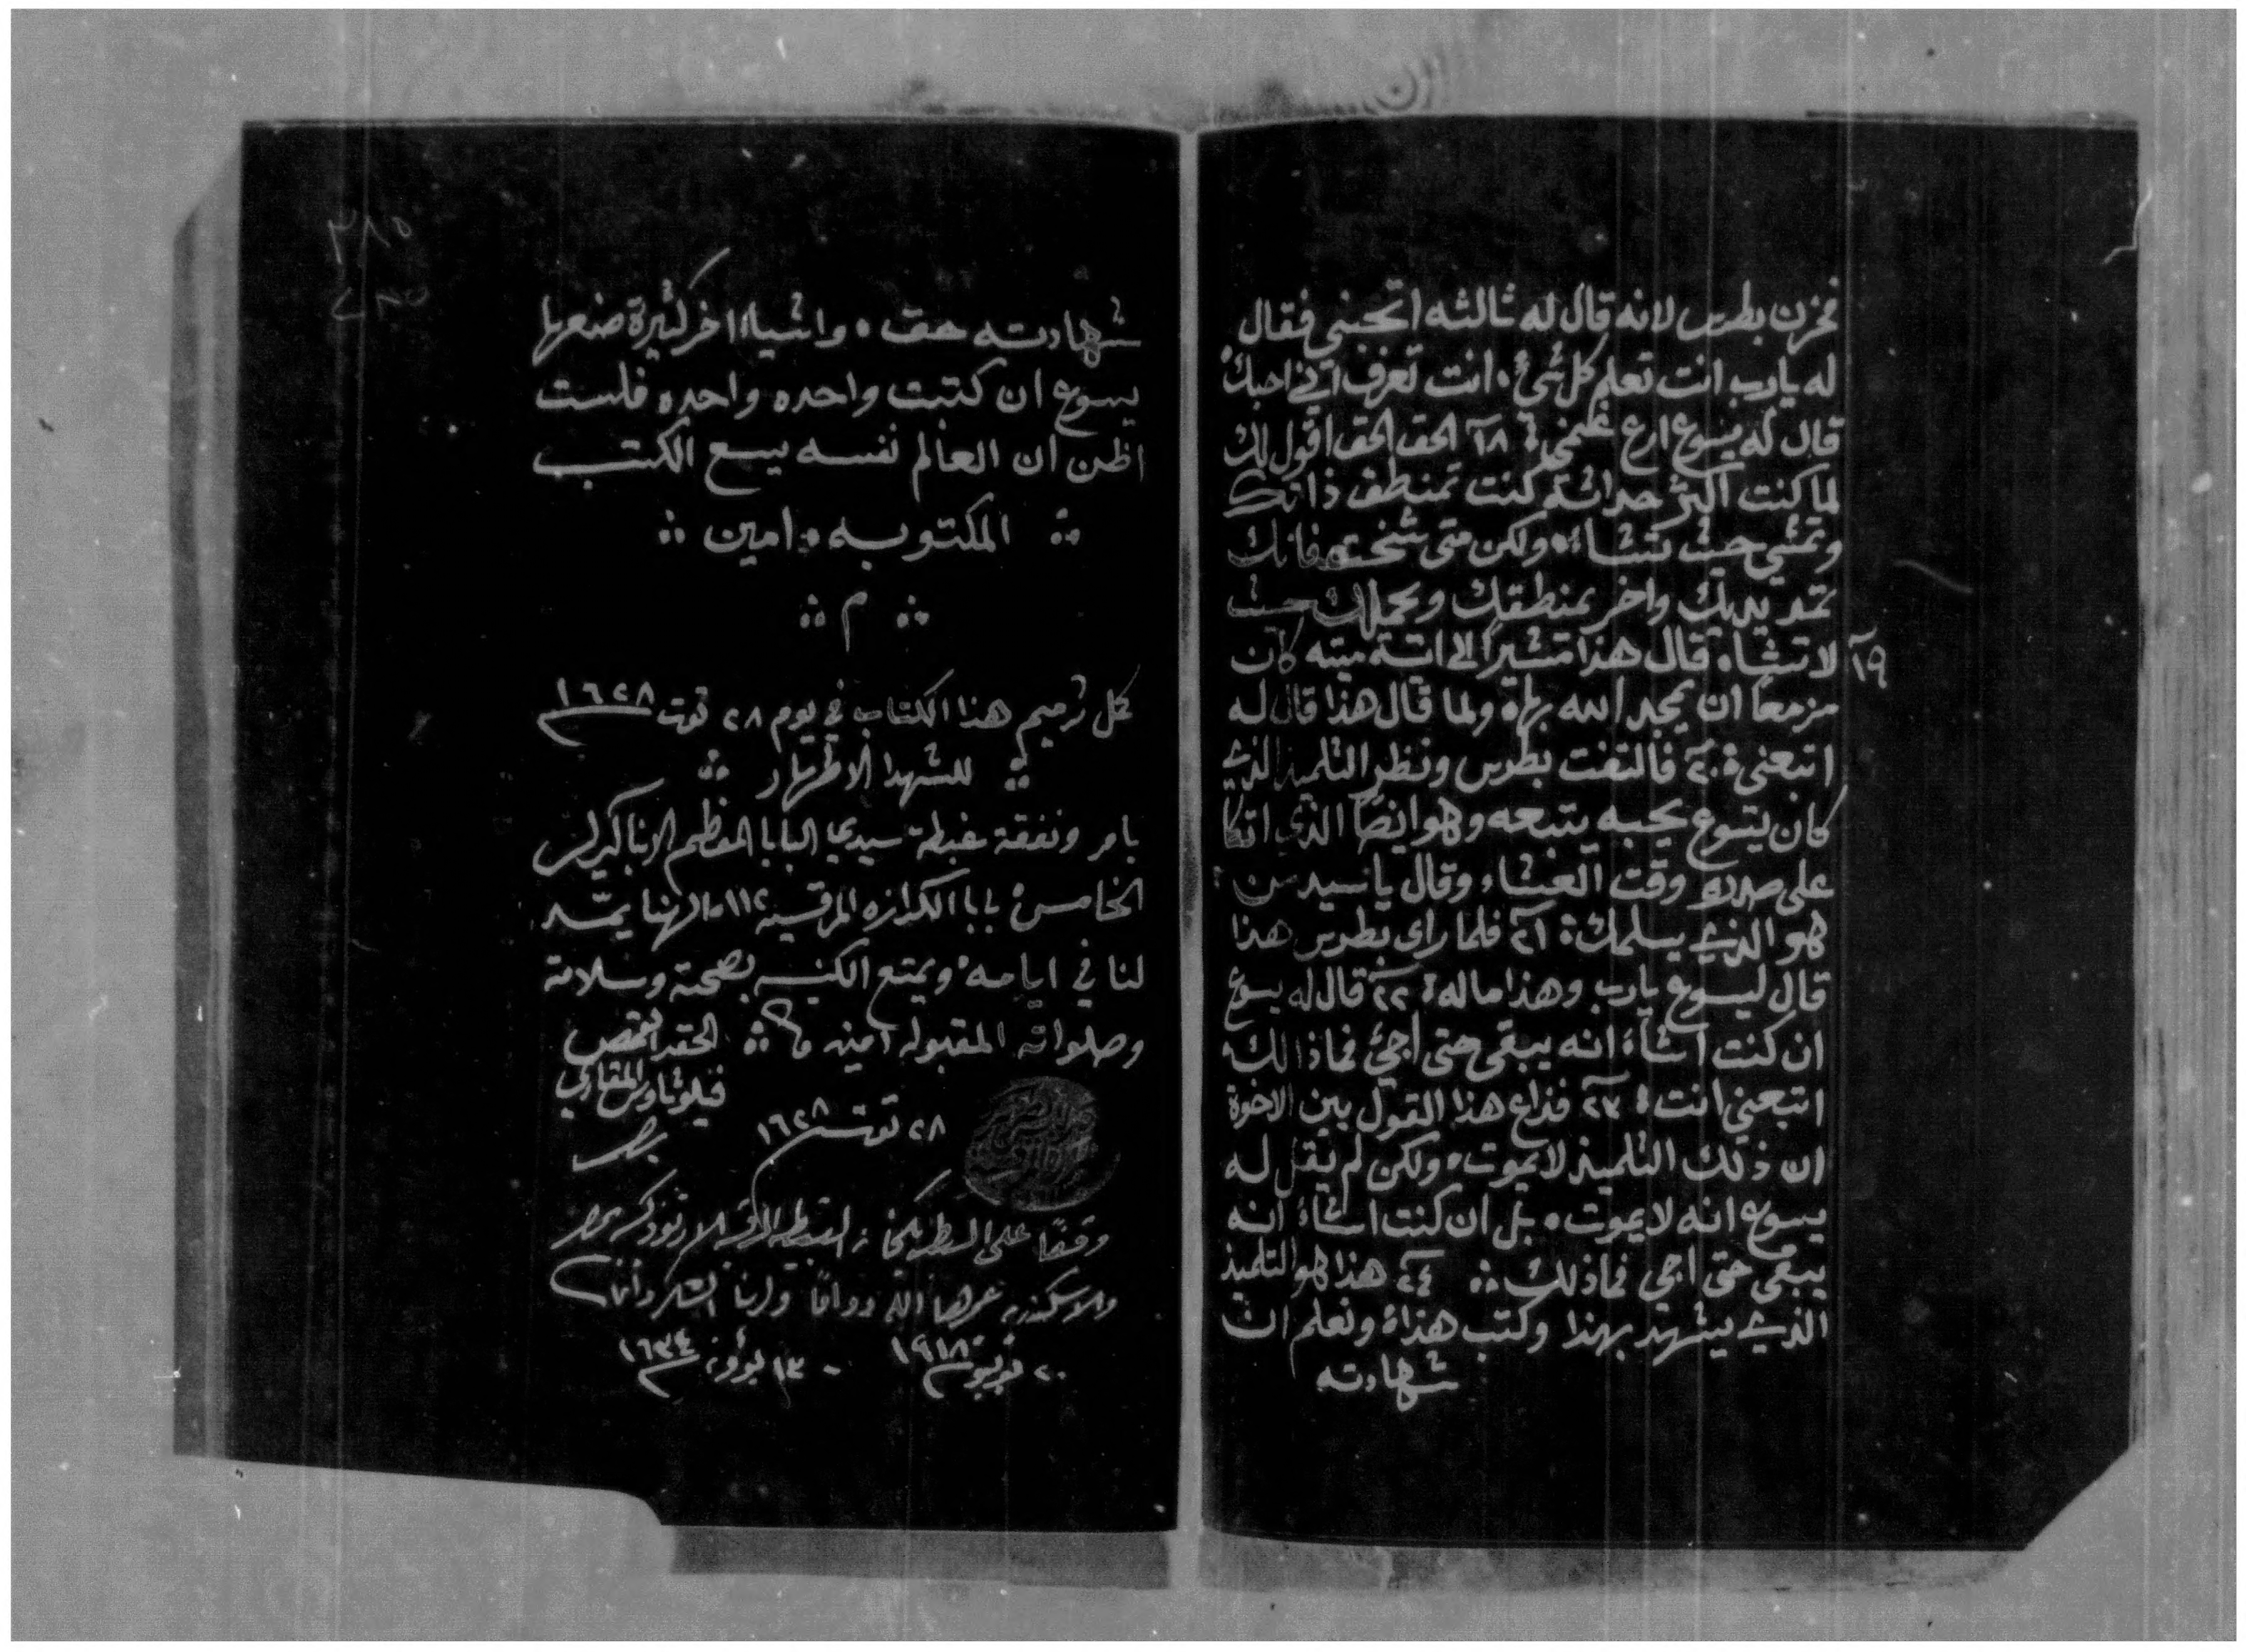 فحزن بطرس لانه قال له ثالثه اتحبني فقال
له يارب انت تعلم كل شئ انت تعرف اني احبك
قال له يسوع ارع غنمي ١٨ الحق الحق اقول لك
لما كنت اكثر حداثة كنت تمنطق ذاتك
وتمشي حيث تشاء ولكن متى شخت فانك
تمد يديك واخر يمنطقك ويحملك حيث
١٩ لا تشاء قال هذا مشيرا الى اية ميته كان
مزمعا ان يمجد الله بها ولما قال هذا قال له
اتبعني ٢٠ فالتفت بطرس ونظر التلميذ الذي
كان يسوع يحبه يتبعه وهو ايضا الذي اتكا
على صدره وقت العشاء وقال يا سيد من
هو الذي يسلمك ٢١ فلما راى بطرس هذا
قال ليسوع يارب وهذا ماله ٢٢ قال له يسوع
ان كنت اشاء انه يبقى حتى اجئ فماذا لك
اتبعني انت ٢٣ فذاع هذا القول بين الاخوة
ان ذلك التلميذ لا يموت ولكن لم يقل له
يسوع انه لا يموت بل ان كنت اشاء انه
يبقى حتى اجي فماذلك ٢٤ هذا هو التلميذ
الذي يشهد بهذا وكتب هذا ونعلم ان
شهادته
٢٨٥
شهادته حق واشياء اخر كثيرة صنعها
يسوع ان كتبت واحده واحده فلست
اظن ان العالم نفسه يسع الكتب
المكتوبه امين
م
كمل ترميم هذا الكتاب في يوم ٢٨ توت ١٦٢٨
للشهدا الاطهار
بامر ونفقة غبطة سيدي البابا المعظم الانبا كيرلس
الخامس بابا الكرازه المرقسيه ١١٢ الهنا يمتد
لنا في ايامه ويمتع الكنيسه بصحته وسلامة
وصلواته المقبوله امين
الحقير القمص
فيلوثاوس المقاري
بيده
٢٨ توت ١٦٢٨
وقفا على البطريكخانه القبطيه الارثوذكس بمصر
والاسكندريه عمرها الله دواما ولربنا الشكر دائما
٢٠ يونيو ١٩١٨ - ١٣ بؤونه ١٦٣٤